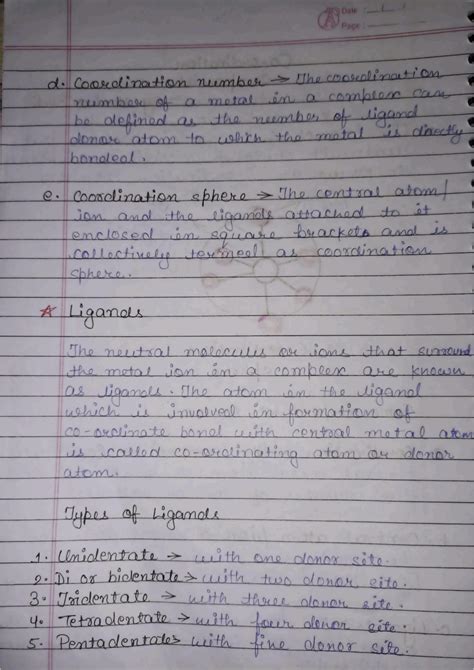 Date : / /
Page :
d. Coordination number → The coordination
number of a metal in a complex can
be defined as the number of ligand
donor atom to which the metal is directly
bonded.
e. Coordination sphere → The central atom/
ion and the ligands attached to it
enclosed in square brackets and is
collectively termed as coordination
sphere.
Ligands
The neutral molecules or ions that surround
the metal ion in a complex are known
as ligands. The atom in the ligand
which is involved in formation of
co-ordinate bond with central metal atom
is called co-ordinating atom or donor
atom.
Types of Ligands
1. Unidentate → with one donor site.
2. Di or bidentate → with two donor site.
3. Tridentate → with three donor site.
4. Tetradentate → with four donor site.
5. Pentadentate → with five donor site.